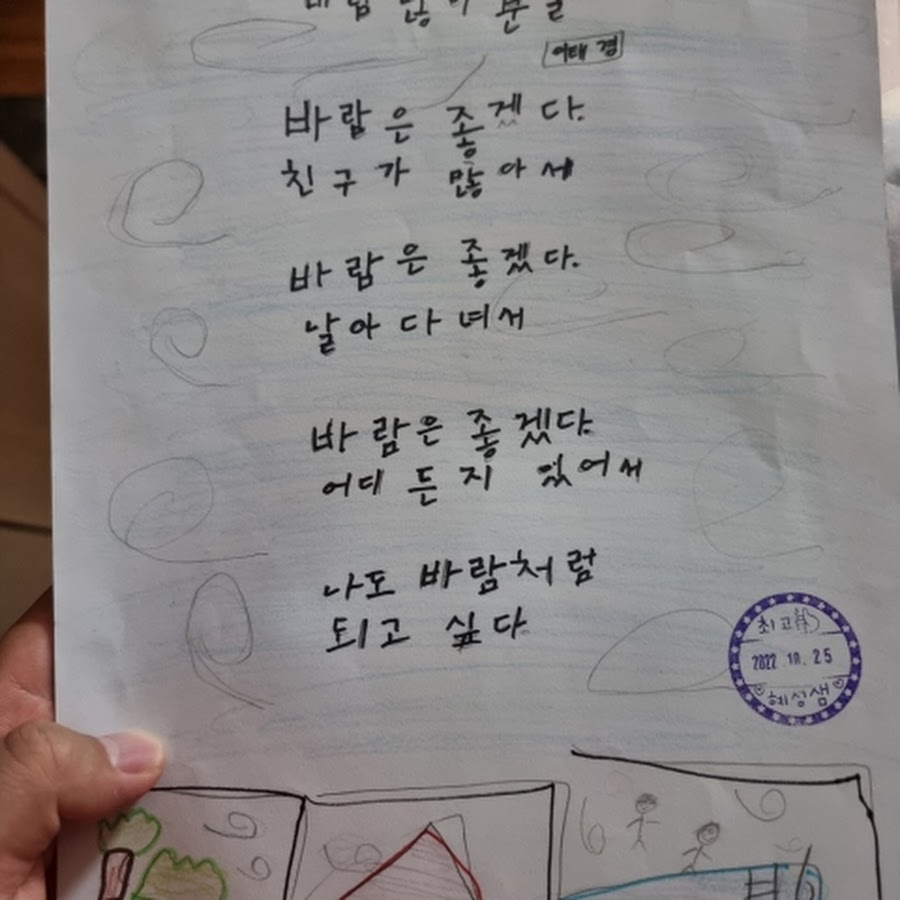 바람 많이 분 날
이태경
바람은 좋겠다.
친구가 많아서
바람은 좋겠다.
날아다녀서
바람은 좋겠다.
어디든지 있어서
나도 바람처럼
되고 싶다
최고
2022.10.25
혜성샘